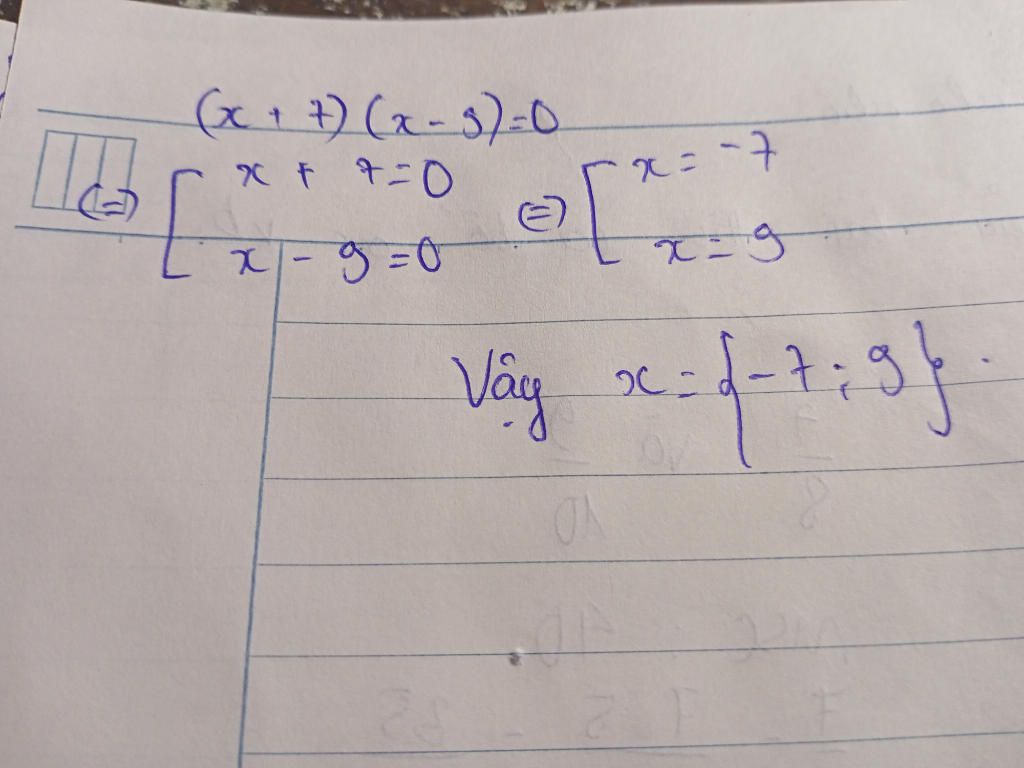 (x + 7) (x - 9) = 0
(=) [ x + 7 = 0 (=) [ x = -7
x - 9 = 0 x = 9
Vậy x = {-7 ; 9}.